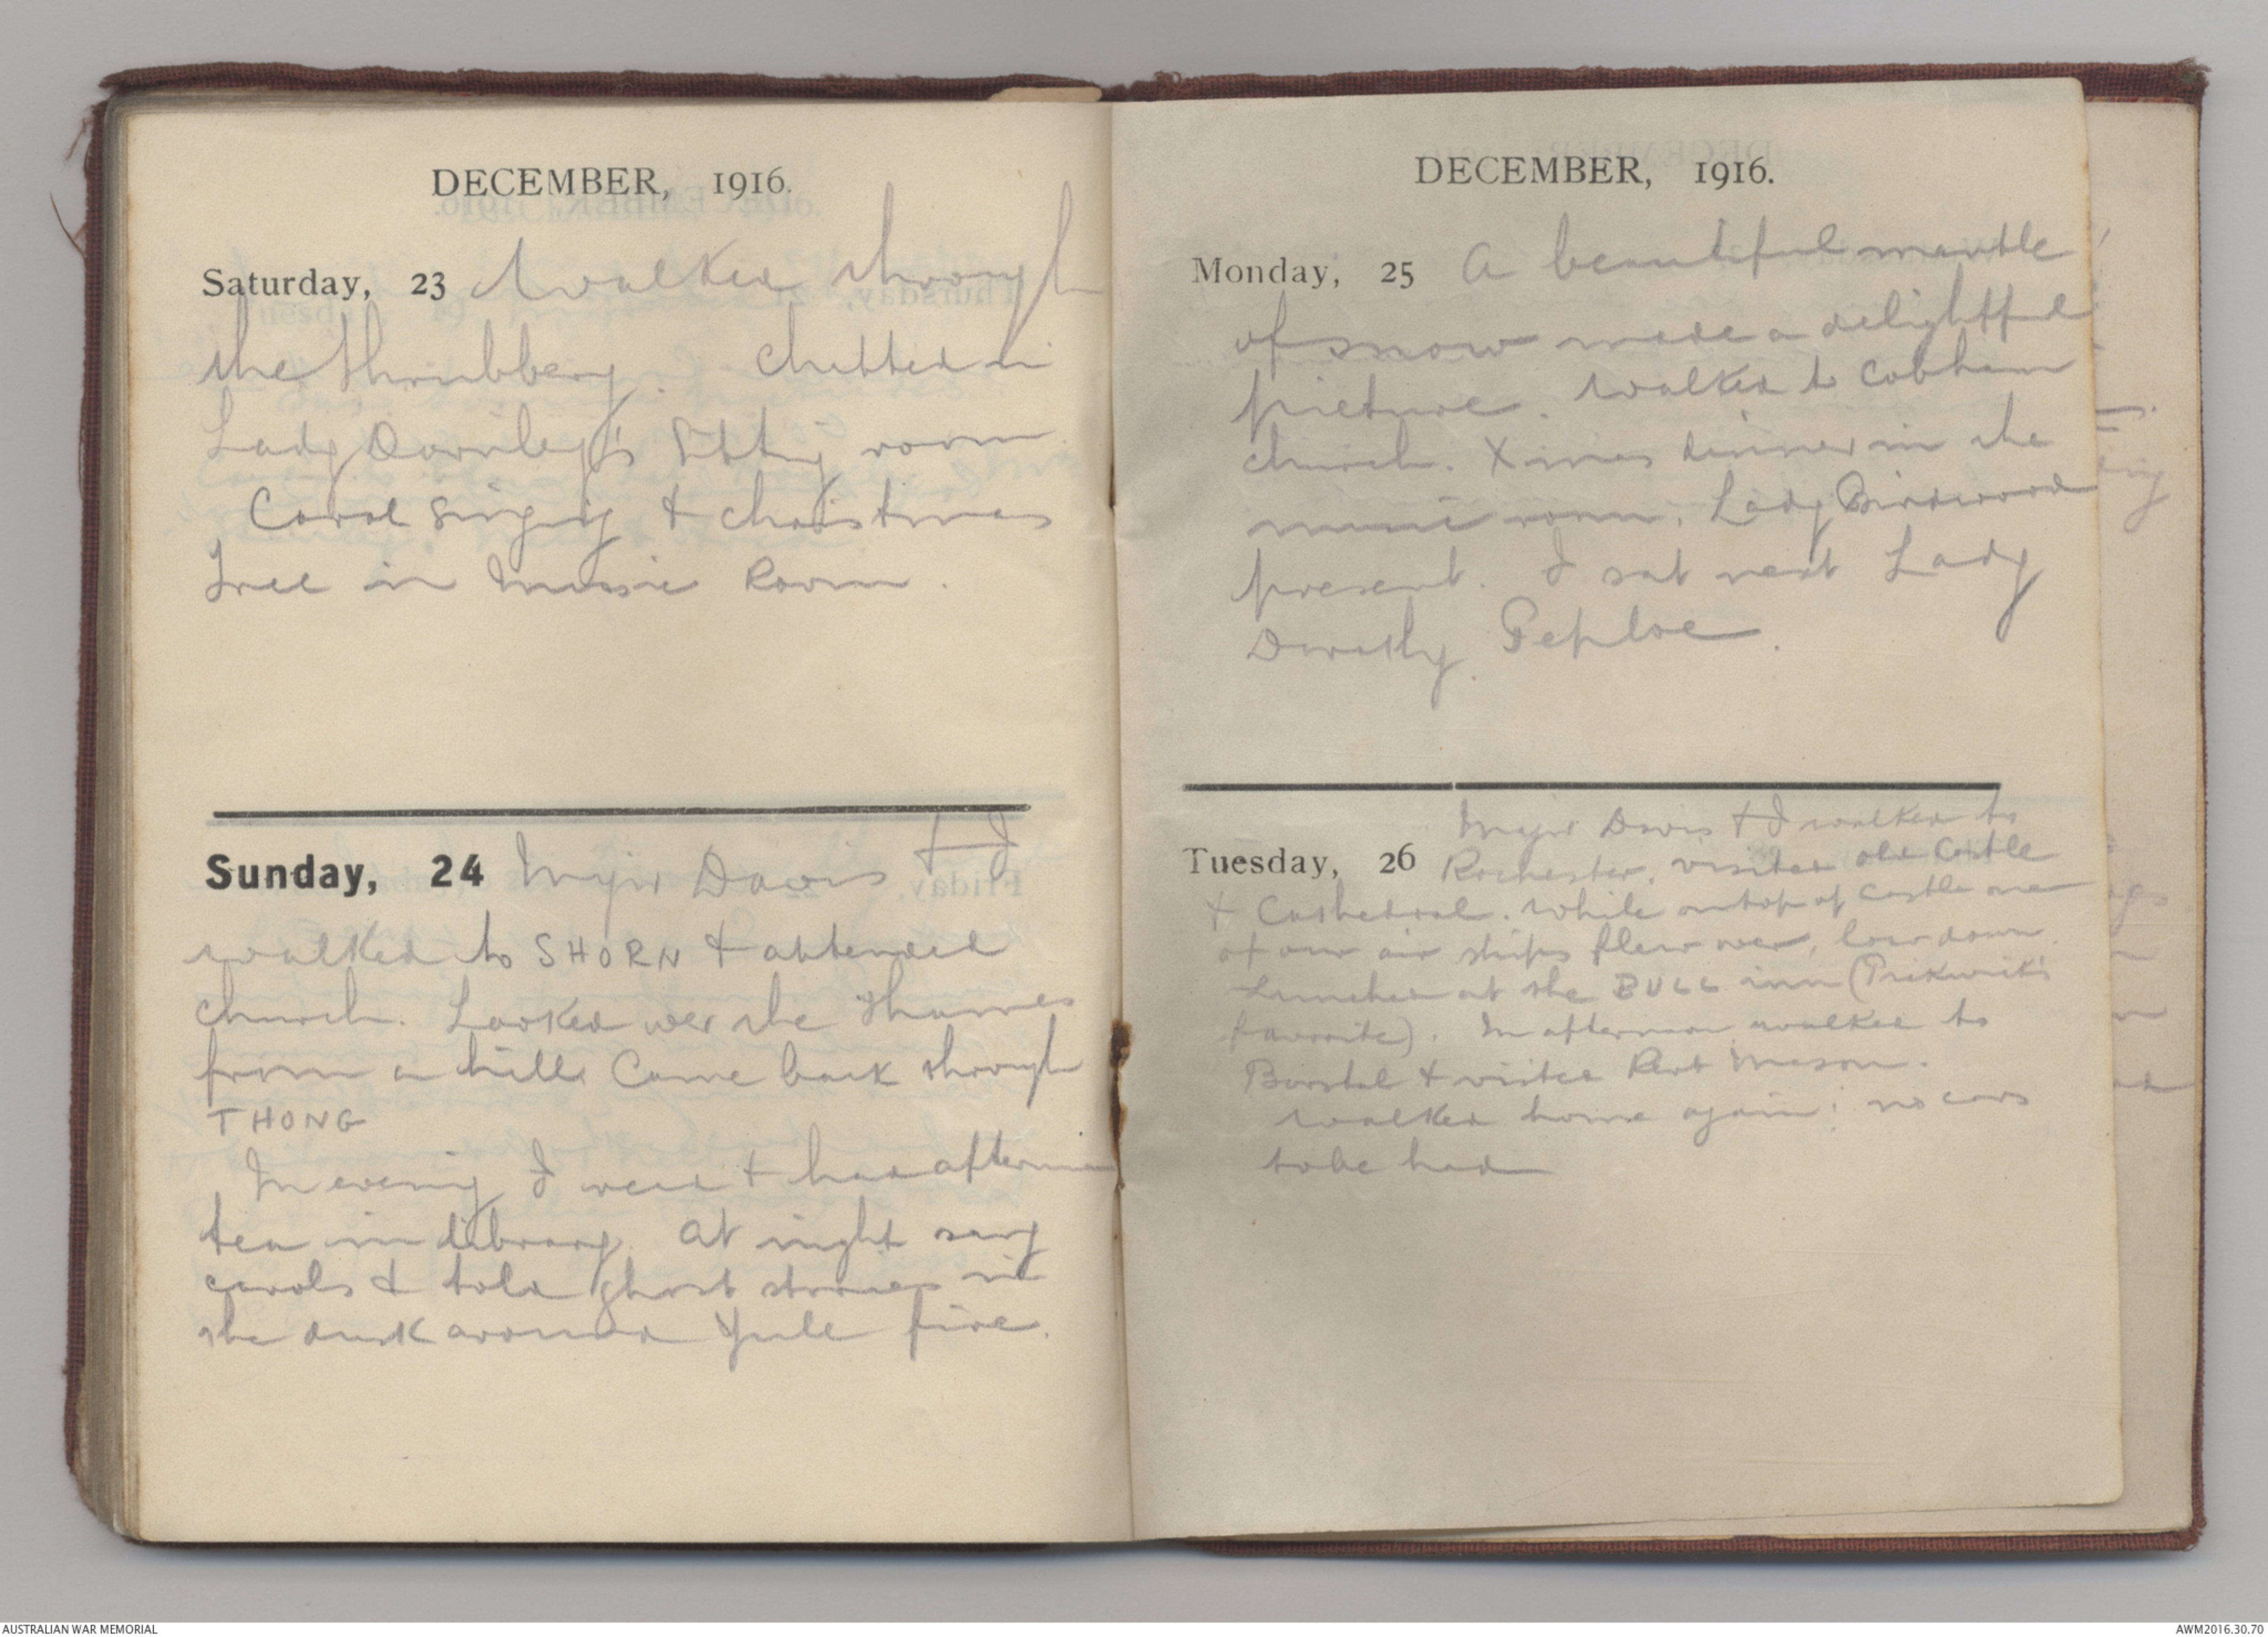 DECEMBER, 1916.
Saturday, 23 Walked through
the shrubbery. Chatted in
Lady Darnley's Sitting room
Carol Singing & Christmas
Tree in Music Room.
Sunday, 24 Major Davis & I
walked to SHORN & attended
church. Looked over the Thames
from a hill. Came back through
THONG
In evening I read & had afternoon
tea in library. At night sang
carols & told ghost stories in
the dusk around Yule fire.
DECEMBER, 1916.
Monday, 25 A beautiful mantle
of snow made a delightful
picture. Walked to Cobham
church. Xmas dinner in the
music room. Lady Birdwood
present. I sat next Lady
Dorothy Peploe.
Major Davis & I walked to
Tuesday, 26 Rochester, visited old Castle
& Cathedral. While on top of castle one
of our air ships flew over, low down.
Lunched at the BULL inn (Pickwick's
favorite). In afternoon walked to
Borstal & visited Mason.
Walked home again; no cars
to be had
AUSTRALIAN WAR MEMORIAL
AWM2016.30.70